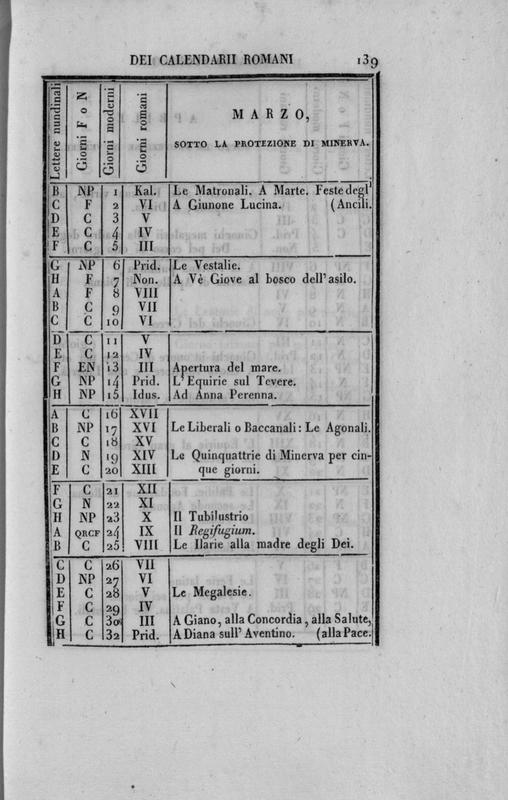 DEI CALENDARII ROMANI 139
Lettere nundinali
Giorni F o N
Giorni moderni
Giorni romani
MARZO,
SOTTO LA PROTEZIONE DI MINERVA.
B NP 1 Kal. Le Matronali. A Marte. Feste degl'
C F 2 VI A Giunone Lucina. (Ancili.
D C 3 V
E C 4 IV
F C 5 III
G NP 6 Prid. Le Vestalie.
H F 7 Non. A Vè Giove al bosco dell'asilo.
A F 8 VIII
B C 9 VII
C C 10 VI
D C 11 V
E C 12 IV
F EN 13 III Apertura del mare.
G NP 14 Prid. L'Equirie sul Tevere.
H NP 15 Idus. Ad Anna Perenna.
A C 16 XVII
B NP 17 XVI Le Liberali o Baccanali: Le Agonali.
C C 18 XV
D N 19 XIV Le Quinquattrie di Minerva per cin-
E C 20 XIII que giorni.
F C 21 XII
G N 22 XI
H NP 23 X Il Tubilustrio
A QRCF 24 IX Il Regifugium.
B C 25 VIII Le Ilarie alla madre degli Dei.
C C 26 VII
D NP 27 VI
E C 28 V Le Megalesie.
F C 29 IV
G C 30 III A Giano, alla Concordia, alla Salute,
H C 32 Prid. A Diana sull'Aventino. (alla Pace.